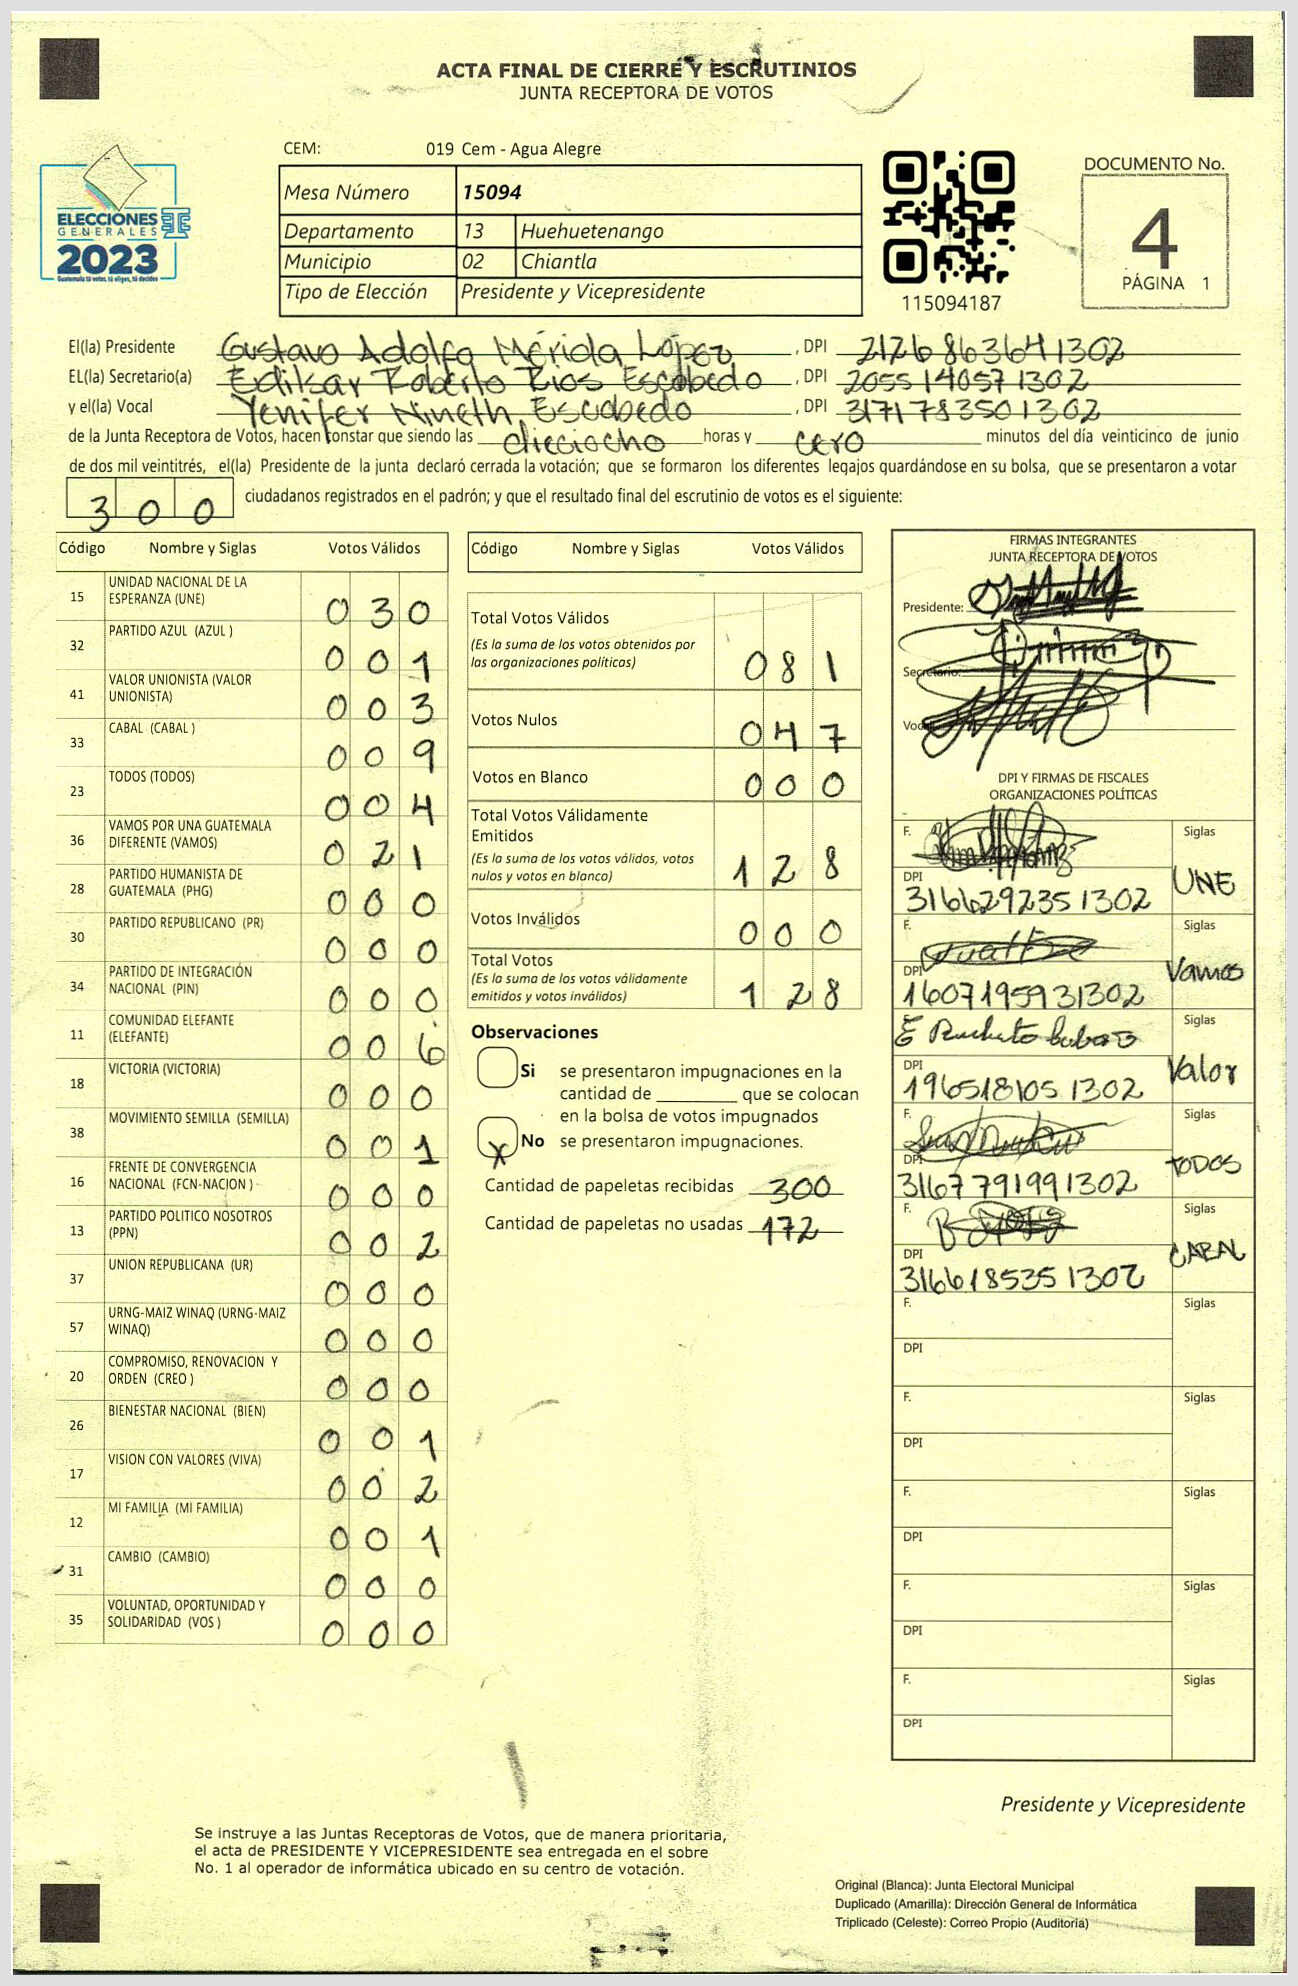 ACTA FINAL DE CIERRE Y ESCRUTINIOS
JUNTA RECEPTORA DE VOTOS
CEM: 019 Cem - Agua Alegre
Mesa Número 15094
Departamento 13 Huehuetenango
Municipio 02 Chiantla
Tipo de Elección Presidente y Vicepresidente
ELECCIONES
GENERALES
2023
Guatemala tú votas, tú eliges, tú decides
115094187
DOCUMENTO No.
4
PÁGINA 1
El(la) Presidente Gustavo Adolfo Mérida López , DPI 2126863641302
EL(la) Secretario(a) Edilsar Roberto Rios Escobedo , DPI 2055140571302
y el(la) Vocal Yenifer Nineth Escobedo , DPI 3171783501302
de la Junta Receptora de Votos, hacen constar que siendo las dieciocho horas y cero minutos del día veinticinco de junio
de dos mil veintitrés, el(la) Presidente de la junta declaró cerrada la votación; que se formaron los diferentes legajos guardándose en su bolsa, que se presentaron a votar
300 ciudadanos registrados en el padrón; y que el resultado final del escrutinio de votos es el siguiente:
Código Nombre y Siglas Votos Válidos
15 UNIDAD NACIONAL DE LA ESPERANZA (UNE) 030
32 PARTIDO AZUL (AZUL ) 001
41 VALOR UNIONISTA (VALOR UNIONISTA) 003
33 CABAL (CABAL ) 009
23 TODOS (TODOS) 004
36 VAMOS POR UNA GUATEMALA DIFERENTE (VAMOS) 021
28 PARTIDO HUMANISTA DE GUATEMALA (PHG) 000
30 PARTIDO REPUBLICANO (PR) 000
34 PARTIDO DE INTEGRACIÓN NACIONAL (PIN) 000
11 COMUNIDAD ELEFANTE (ELEFANTE) 006
18 VICTORIA (VICTORIA) 000
38 MOVIMIENTO SEMILLA (SEMILLA) 001
16 FRENTE DE CONVERGENCIA NACIONAL (FCN-NACION ) 000
13 PARTIDO POLITICO NOSOTROS (PPN) 002
37 UNION REPUBLICANA (UR) 000
57 URNG-MAIZ WINAQ (URNG-MAIZ WINAQ) 000
20 COMPROMISO, RENOVACION Y ORDEN (CREO ) 000
26 BIENESTAR NACIONAL (BIEN) 001
17 VISION CON VALORES (VIVA) 002
12 MI FAMILIA (MI FAMILIA) 001
31 CAMBIO (CAMBIO) 000
35 VOLUNTAD, OPORTUNIDAD Y SOLIDARIDAD (VOS ) 000
Código Nombre y Siglas Votos Válidos
Total Votos Válidos 081
(Es la suma de los votos obtenidos por
las organizaciones políticas)
Votos Nulos 047
Votos en Blanco 000
Total Votos Válidamente
Emitidos 128
(Es la suma de los votos válidos, votos
nulos y votos en blanco)
Votos Inválidos 000
Total Votos 128
(Es la suma de los votos válidamente
emitidos y votos inválidos)
Observaciones
Si se presentaron impugnaciones en la
cantidad de ________ que se colocan
en la bolsa de votos impugnados
X No se presentaron impugnaciones.
Cantidad de papeletas recibidas 300
Cantidad de papeletas no usadas 172
FIRMAS INTEGRANTES
JUNTA RECEPTORA DE VOTOS
Presidente:
Secretario:
Vocal
DPI Y FIRMAS DE FISCALES
ORGANIZACIONES POLÍTICAS
F. Siglas
DPI 3166292351302 UNE
F. Siglas
DPI 1607195931302 Vamos
Siglas
DPI 1965181051302 Valor
F. Siglas
DPI 3167791991302 TODOS
F. Siglas
DPI 3166185351302 CABAL
F. Siglas
DPI
F. Siglas
DPI
F. Siglas
DPI
F. Siglas
DPI
F. Siglas
DPI
Presidente y Vicepresidente
Se instruye a las Juntas Receptoras de Votos, que de manera prioritaria,
el acta de PRESIDENTE Y VICEPRESIDENTE sea entregada en el sobre
No. 1 al operador de informática ubicado en su centro de votación.
Original (Blanca): Junta Electoral Municipal
Duplicado (Amarilla): Dirección General de Informática
Triplicado (Celeste): Correo Propio (Auditoría)